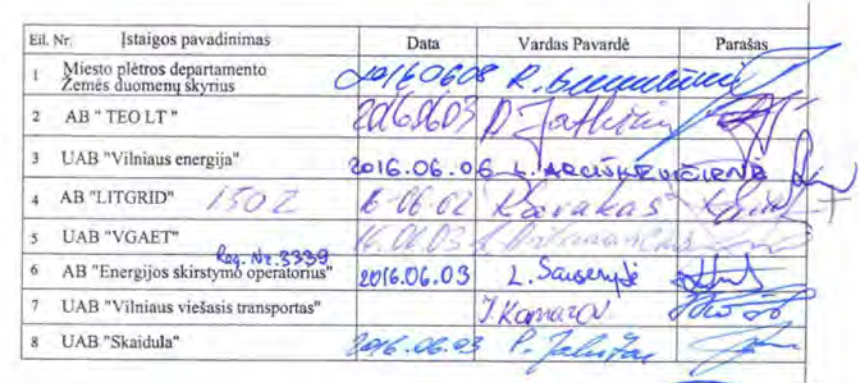 Eil. Nr. Įstaigos pavadinimas Data Vardas Pavardė Parašas
1 Miesto plėtros departamento
Žemės duomenų skyrius 20160608 R.
2 AB " TEO LT " 20160603
3 UAB "Vilniaus energija" 2016.06.06 L. ARCIŠKEVIČIENĖ
4 AB "LITGRID" 1502 16-06-02 Kavakas
5 UAB "VGAET" 16.06.03
Reg. Nr. 3339
6 AB "Energijos skirstymo operatorius" 2016.06.03 L.
7 UAB "Vilniaus viešasis transportas" J. Komarov
8 UAB "Skaidula" 2016.06.03 P.